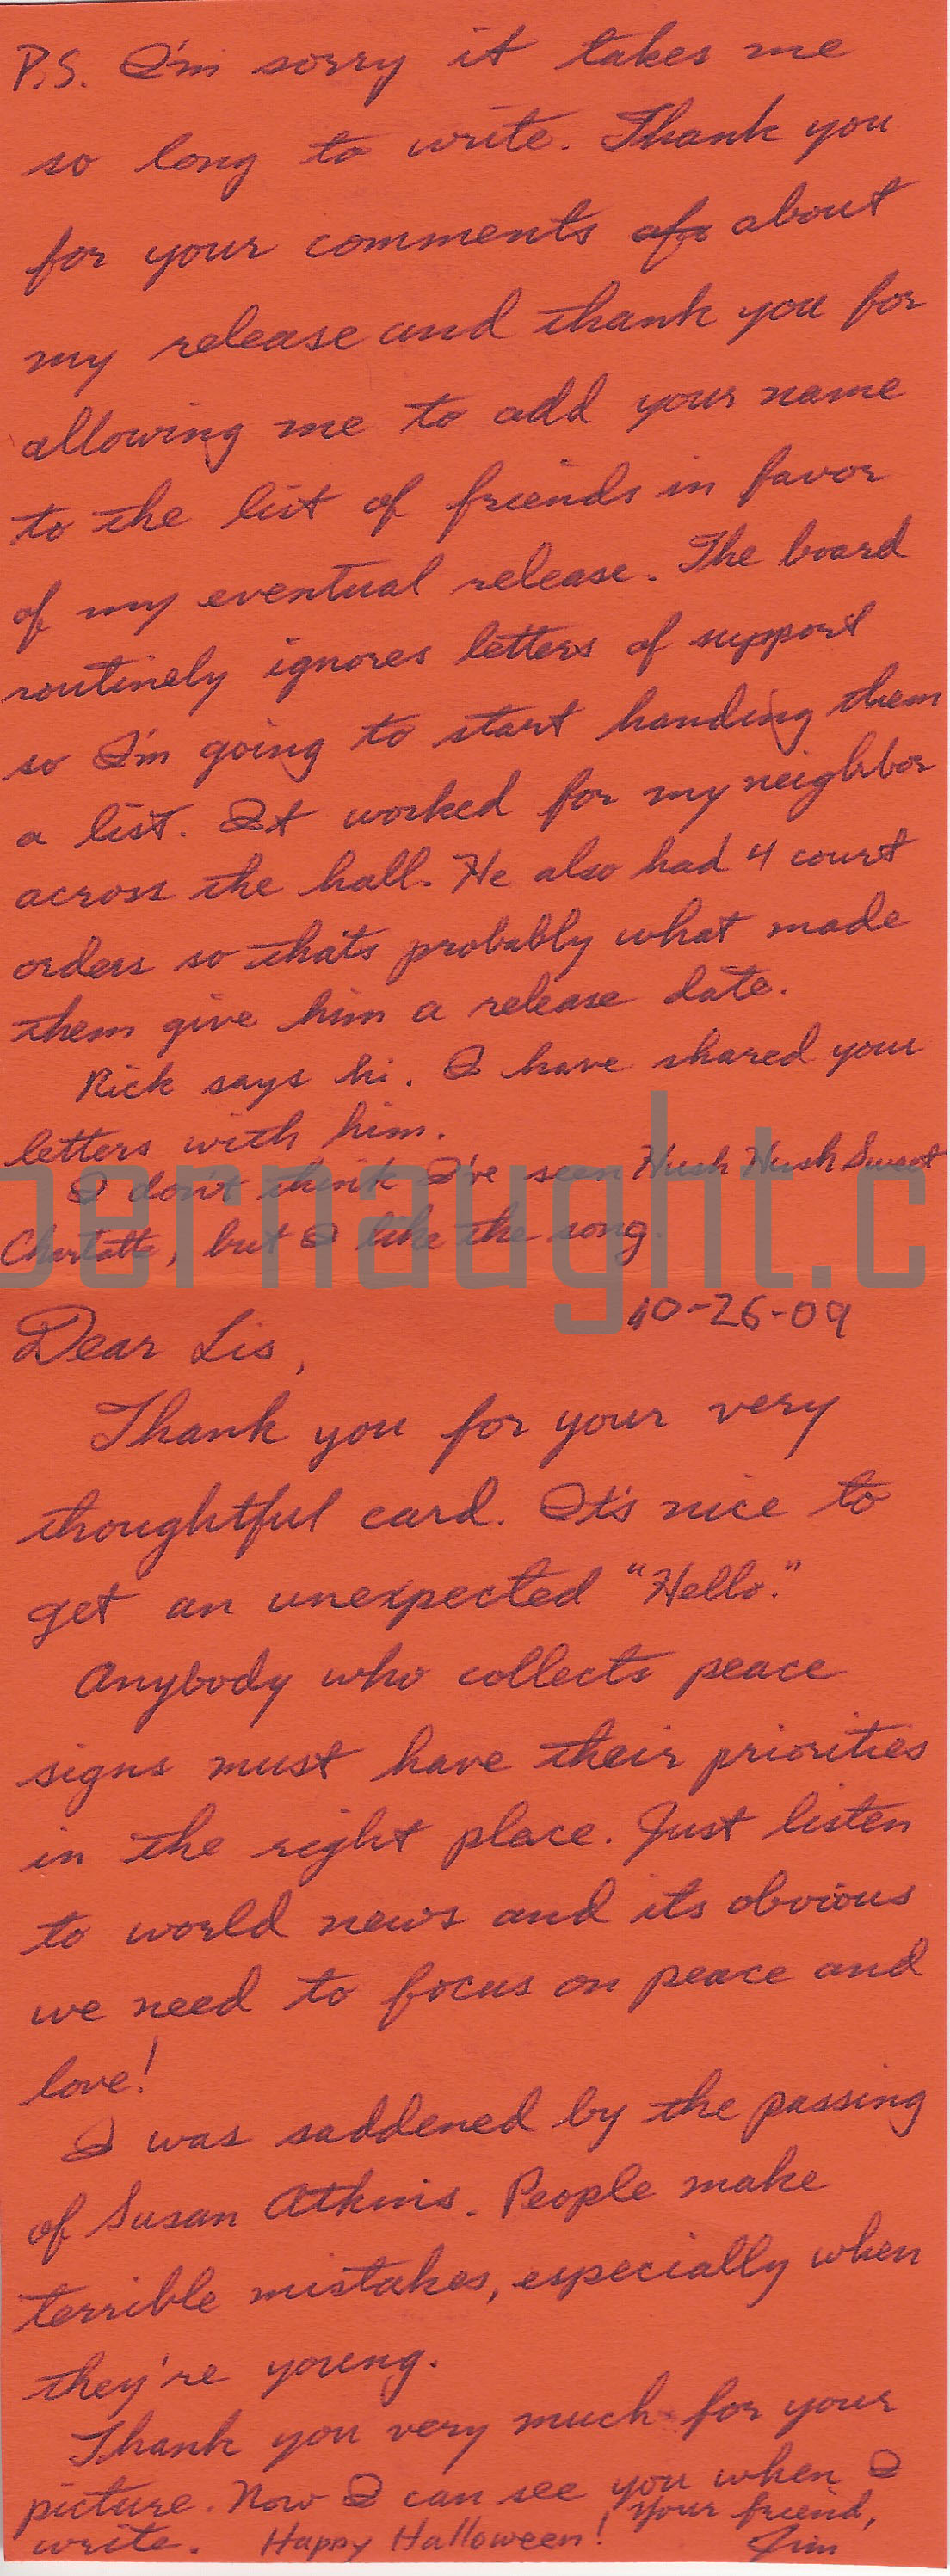 P.S. I'm sorry it takes me
so long to write. Thank you
for your comments about
my release and thank you for
allowing me to add your name
to the list of friends in favor
of my eventual release. The board
routinely ignores letters of support
so I'm going to start handing them
a list. It worked for my neighbor
across the hall. He also had 4 court
orders so thats probably what made
them give him a release date.
Rick says hi. I have shared your
letters with him.
I don't think I've seen Hush Hush Sweet
Charlotte, but I like the song.
pernaught.c
10-26-09
Dear Lis,
Thank you for your very
thoughtful card. It's nice to
get an unexpected "Hello."
Anybody who collects peace
signs must have their priorities
in the right place. Just listen
to world news and its obvious
we need to focus on peace and
love!
I was saddened by the passing
of Susan Atkins. People make
terrible mistakes, especially when
they're young.
Thank you very much for your
picture. Now I can see you when I
write. Happy Halloween! Your friend,
Jim